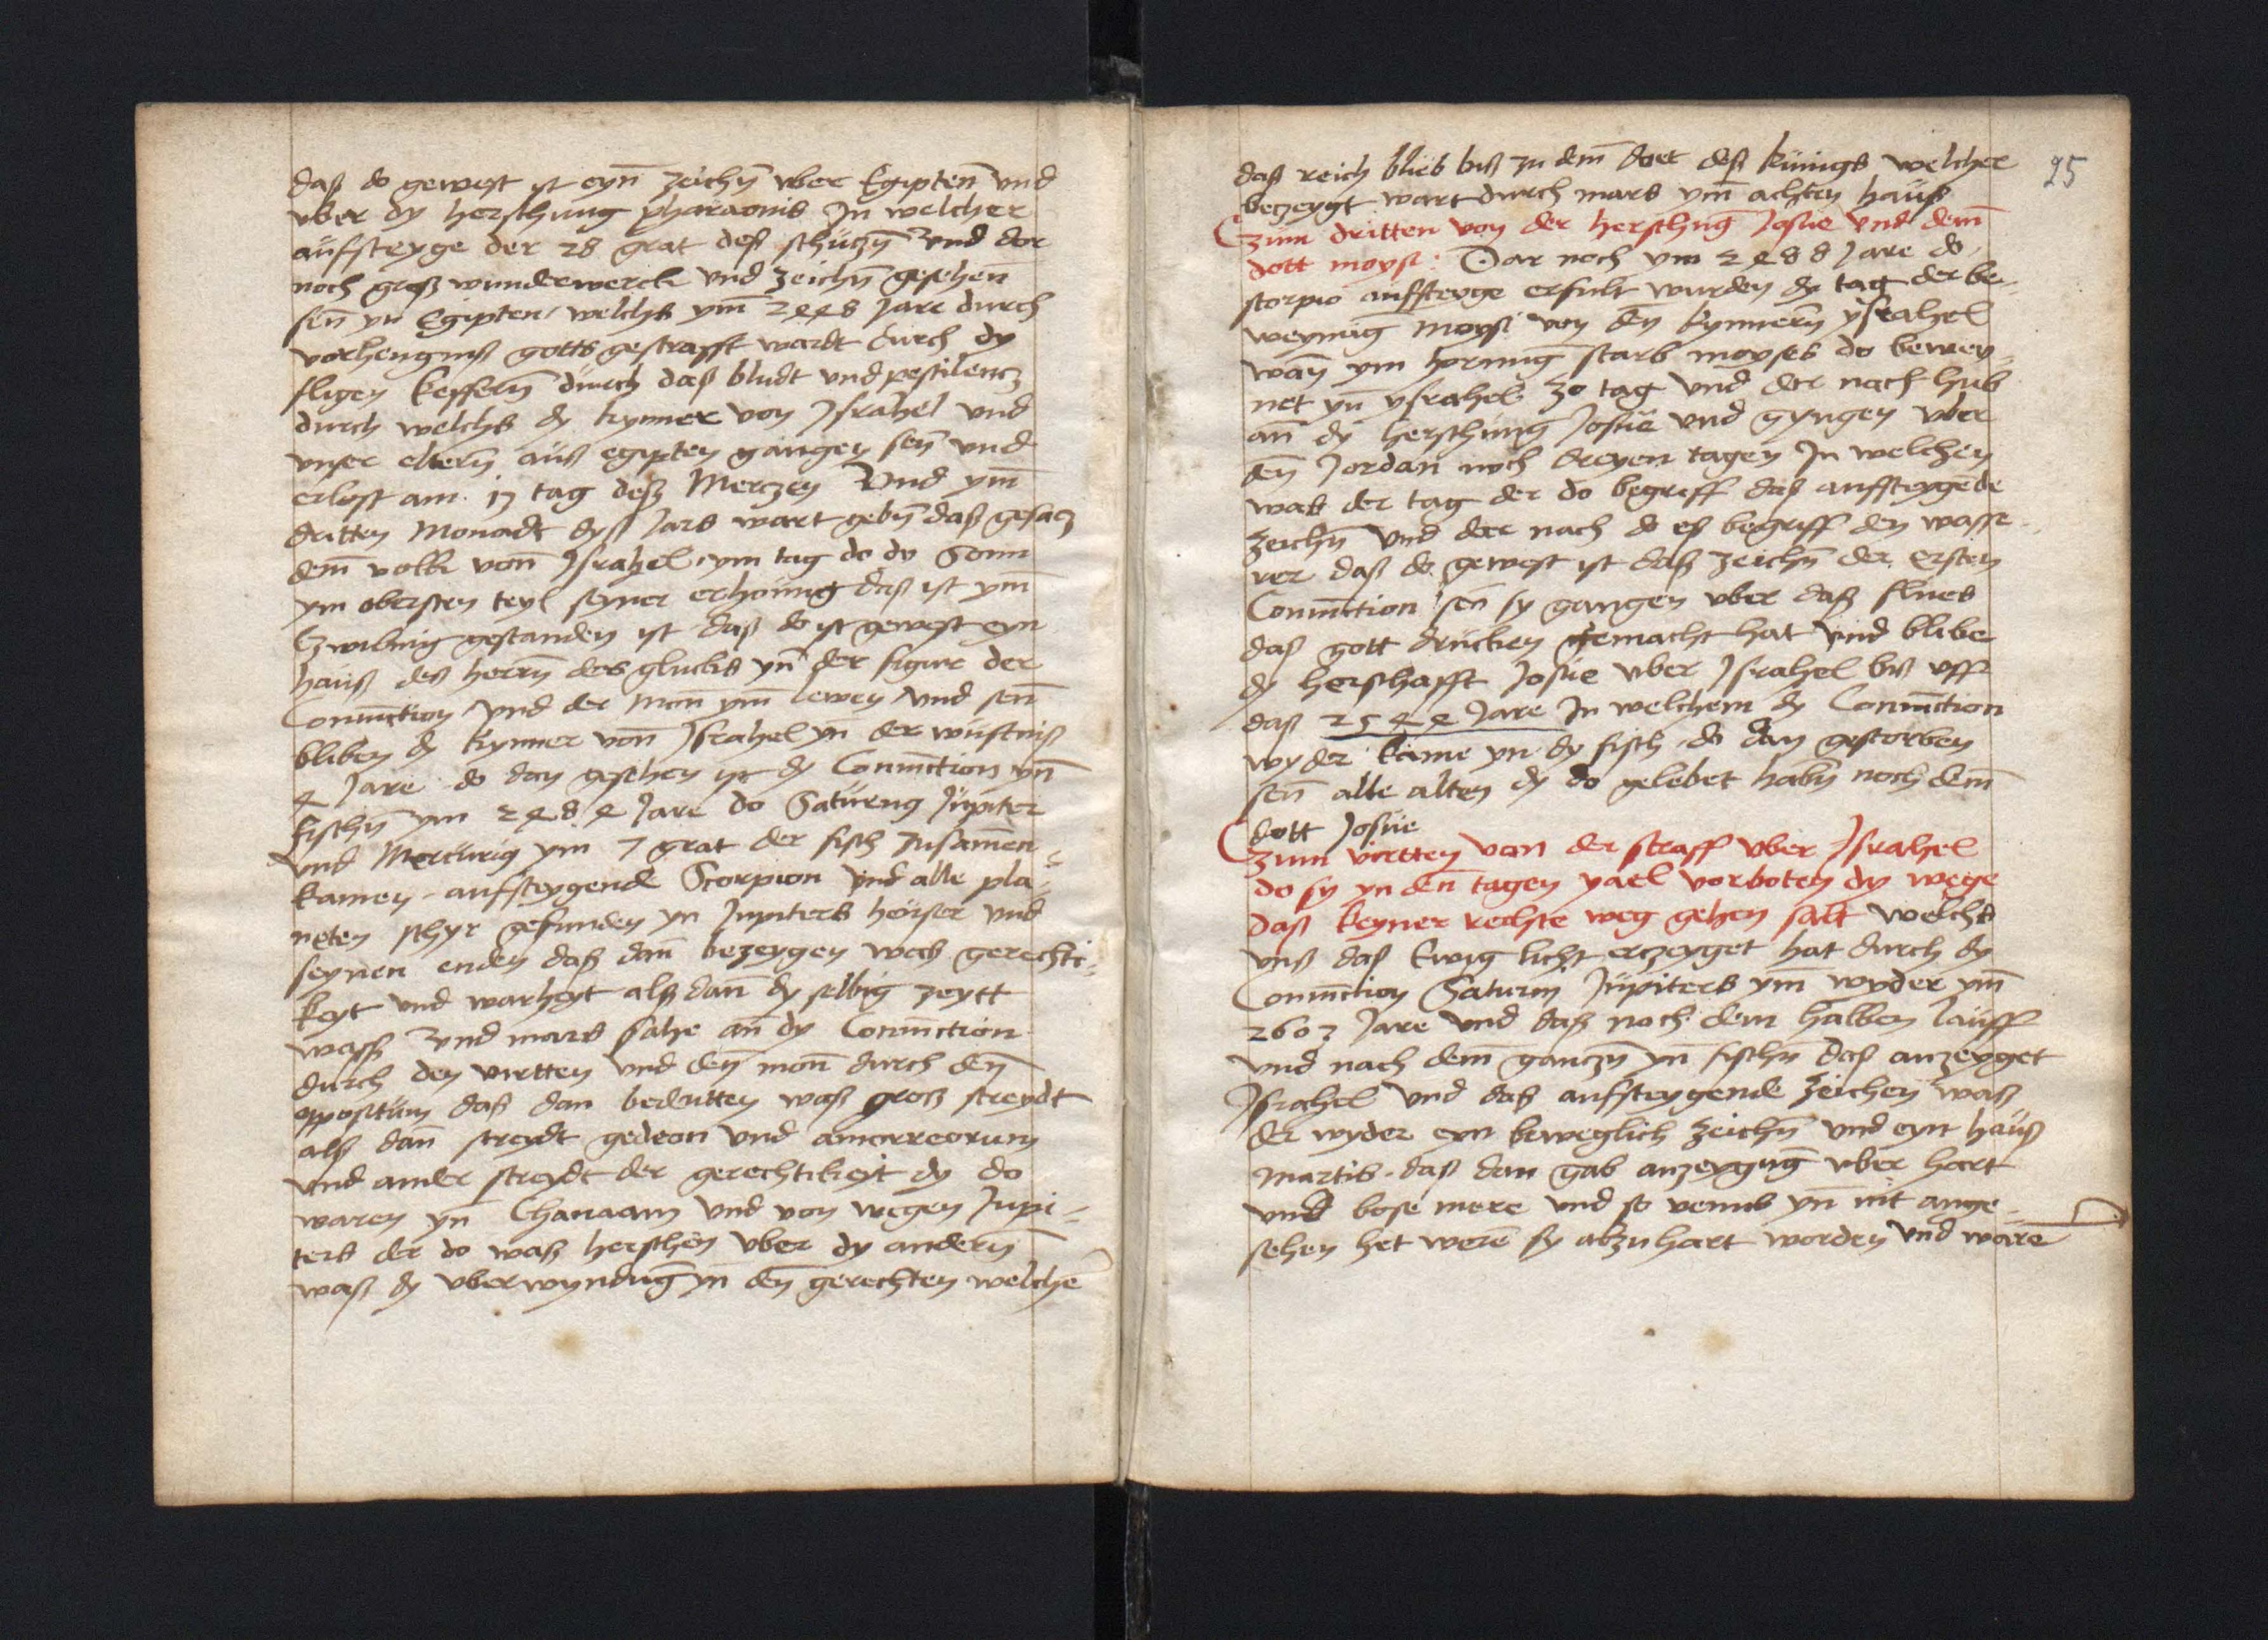 daß do gewest ist eyn̄ zeichn̄ vber Egiptenn̄ vnd
vber dy herschung pharaonis In welcher
aufsteyge der 28 grat deß schuczn̄ vnd dor
noch groß wunderwerck vnd zeichn̄ geschenn̄
sen̄ yn Egipten welchs ym̄ 2448 Jare durch
vorhengnuß gotts gestrafft wardt durch dy
fligen keffern̄ durch daß bludt vnd pestilencz
durch welchs dy kynner von Israhel vnd
vnser eltern̄ auß egipten gangen sen̄ vnd
erlost am 17 tag deß Merczen Vnd ym̄
dritten Monadt dyß Jars wart gebn̄ daß gesacz
dem̄ volk von̄ Israhel ym tag do dy Sonn
ym obersten teyl seyner erhoung daß ist ym̄
Czwiling gestanden ist daß do ist gewest eyn
hauß deß herrn̄ des glucks yn̄ der figur der
Coniūction vnd der mon̄ ym̄ lewen vnd sen̄
bliben dy kynner von̄ Israhel yn̄ der wustniß
4 Jare do dan geschen ist dy Coniūction yn̄
fischn̄ ym 2484 Jare do Saturnq Jupiter
vnd Mercuriq ym 7 grat der fisch zusam̄en=
kamen aufsteygende Scorpion vnd alle pla=
neten schyr gefunden yn Jupiters heuser vnd
seynen enden daß dan̄ bezeygen waß gerechti=
keyt vnd warheyt alß dan̄ dy selbig zeytt
waß vnd mars sahe an̄ dy Coniūction
durch den virtten vnd den̄ mon̄ durch den̄
oppositum daß dan bedeutten waß groß streydt
alß dan̄ streydt gedeon vnd amorreorum
vnd ander streydt der gerechtikeyt dy do
waren yn̄ Chanaam vnd von wegen Jupi=
ters der do waß herschen vber dy andern̄
waß dy vberwyndūg yn den̄ gerechten welche
25
daß reich blieb biß zu dem̄ doet deß kunigs welcher
beczeygt wart durch mars ym̄ achten hauß
Czum dritten von der herschūg Josue vnd dem̄
dott moysi: Dar noch ym 2488 Jare do
scorpio auffsteyge erfult wurden dy tag der be=
weynūg Moysi von den kynnern̄ ysrahel
wan̄ ym hornūg starb moyses do bewey=
net yn̄ ysrahel 30 tag vnd der nach hub
an̄ dy herschung Josue vnd gyngen vber
den̄ Jordan noch dreyen tagen In welchen
was der tag der do begreff daß auffsteygēde
zeichn̄ vnd der nach do eß begriff den wasse=
rer daß do gewest ist daß zeichn̄ der ersten
Coniūction sen̄ sy gangen vber daß flues
daß gott drucken gemacht hat vnd blibe
dy herschafft Josue vber Israhel biß vff
daß 2544 Jare In welchem dy Coniūction
wyder kame yn dy fisch do dan gestorben
sen̄ alle alten dy do gelebet habn̄ noch dem̄
dott Josue
Czum virtten von der straff vber Israhel
do sy yn den̄ tagen yael vorboten dy wege
daß keyner rechte weg gehen salt welchs
vnß daß Ewig licht erczeyget hat durch dy
Coniūction Saturni Jupiters ym̄ wyder ym̄
2603 Jare vnd daß noch dem halben lauff
vnd nach dem̄ ganczn̄ yn̄ fischn̄ daß anzeyget
Israhel vnd daß auffsteygende zeichen waß
der wyder eyn beweglich zeichn̄ vnd eyn hauß
martis daß dan gab anzeygūg vber hart
vnd bose mere vnd so venus yn̄ nit ange=
sehen het werē sy alzu hart worden vnd ware